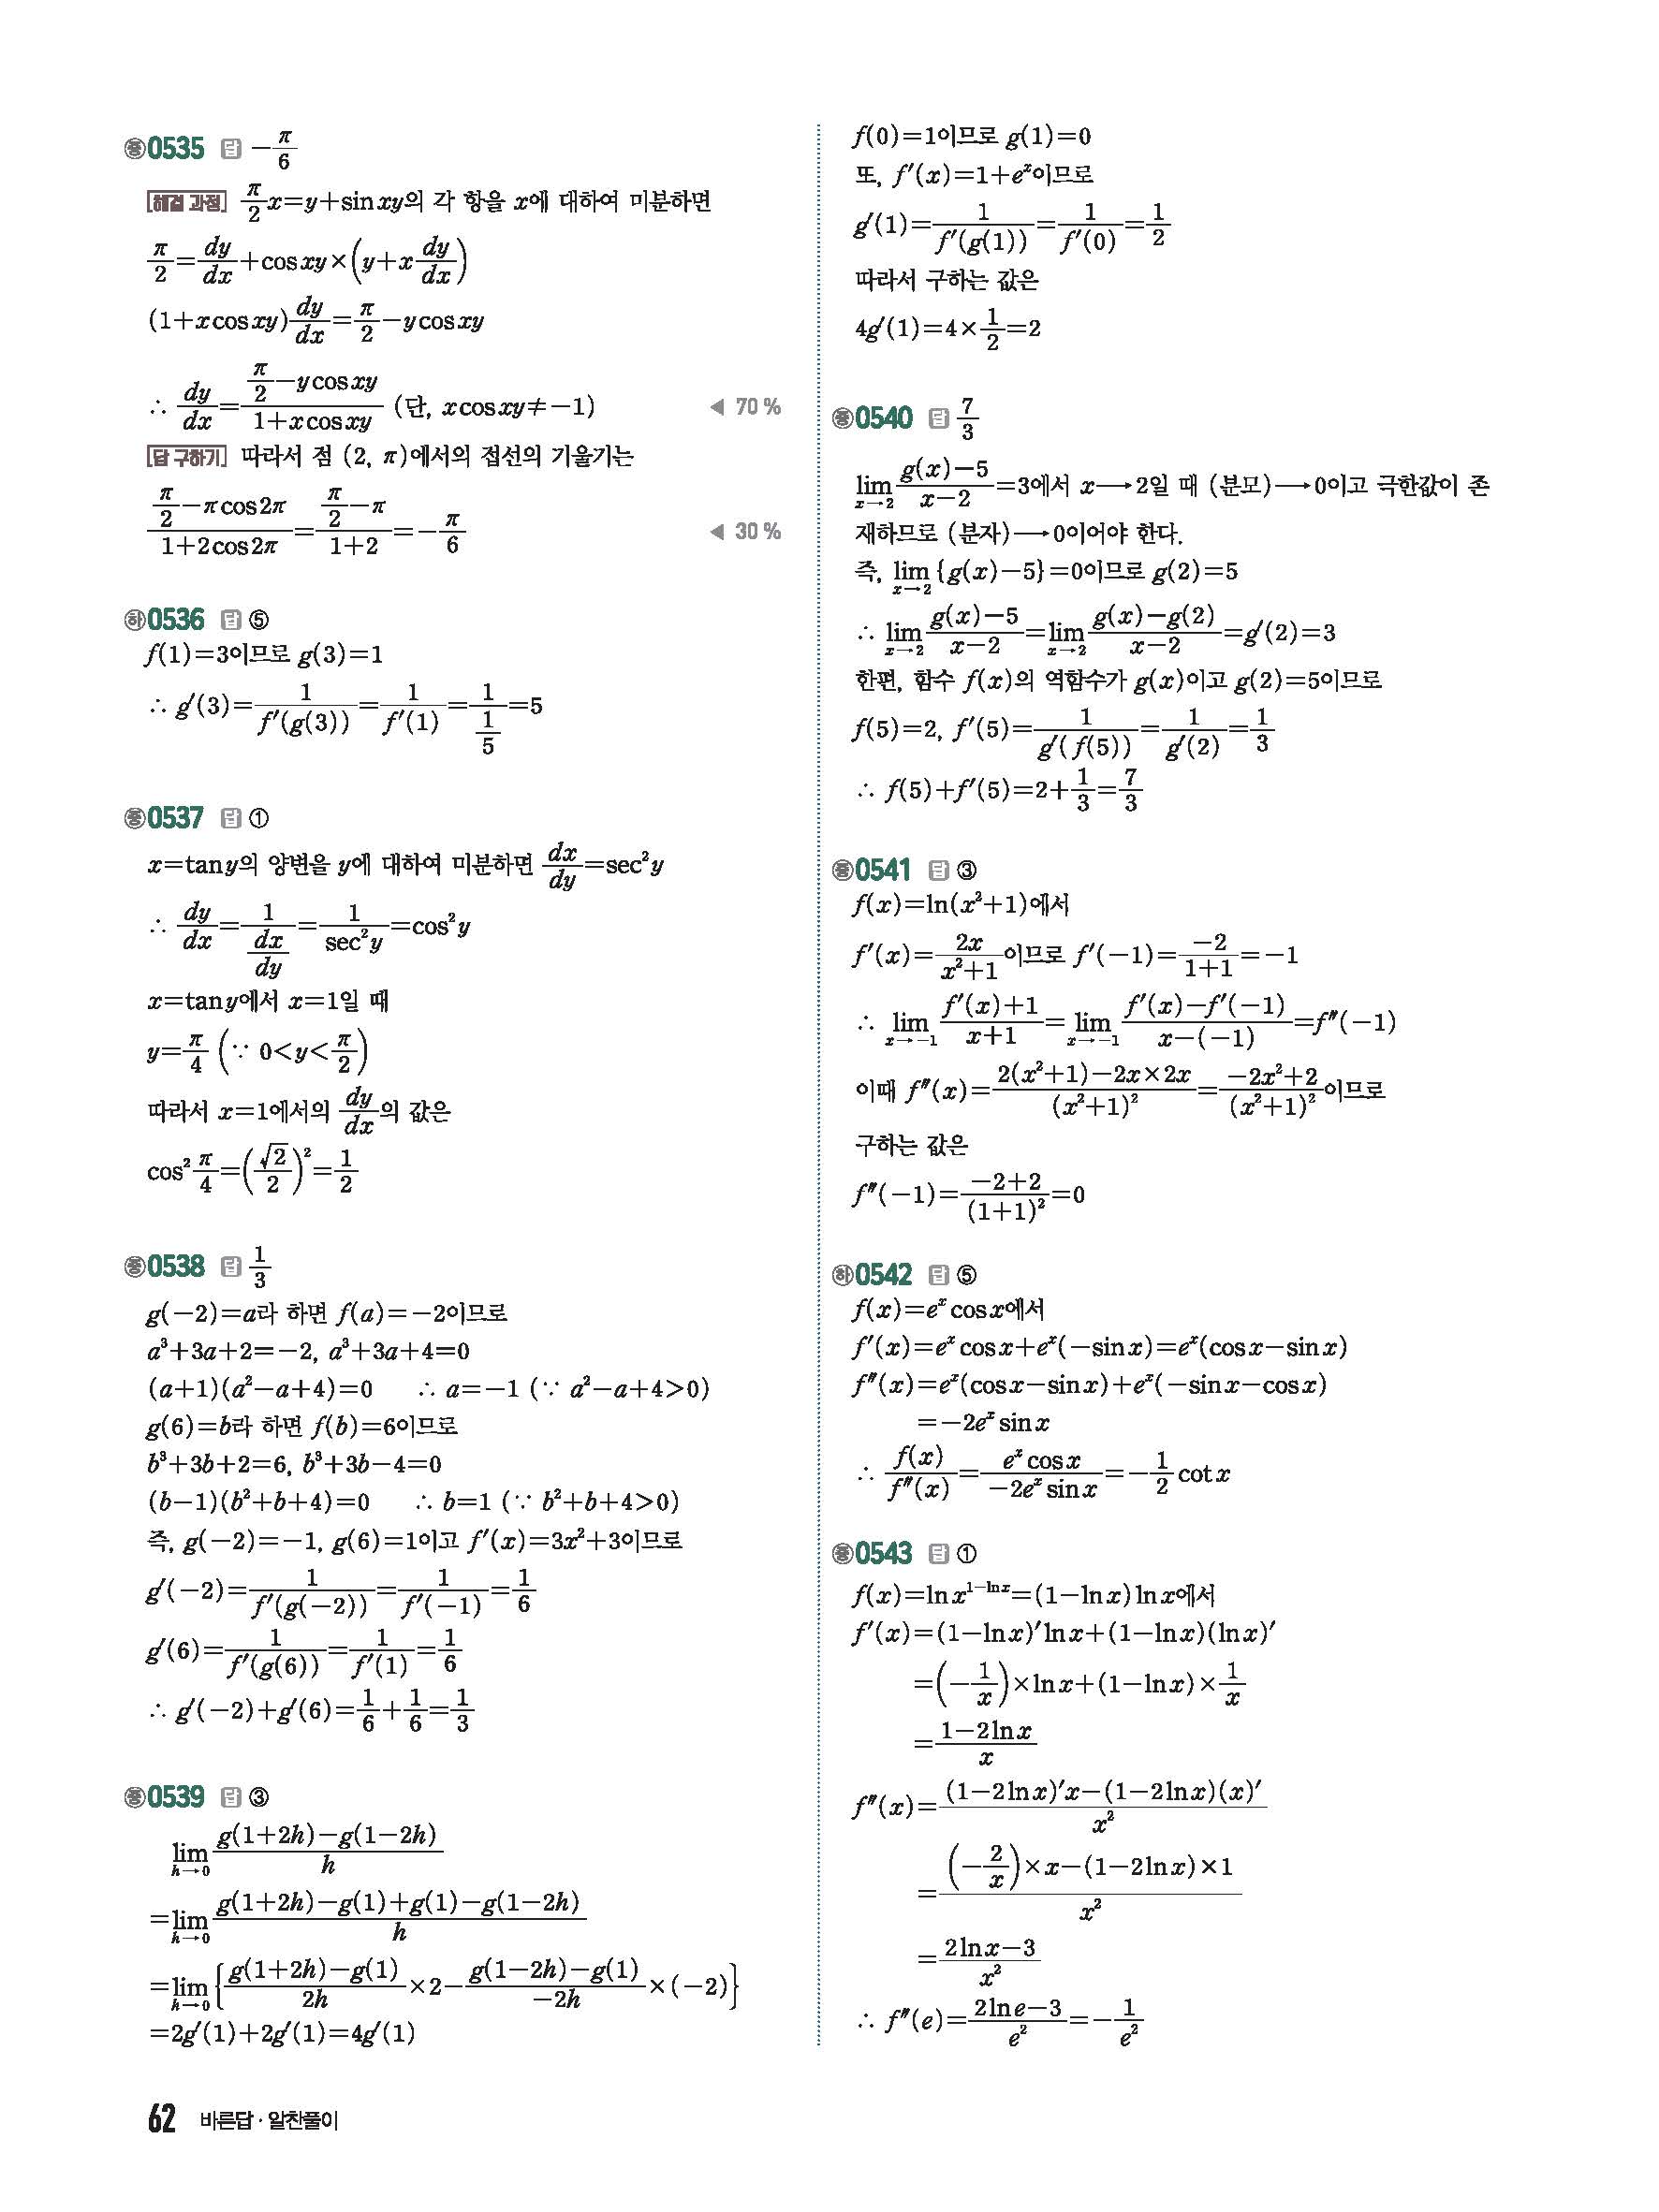 중 0535 답 $-\frac{\pi}{6}$
[해결 과정] $\frac{\pi}{2}x=y+\sin xy$의 각 항을 $x$에 대하여 미분하면
$\frac{\pi}{2}=\frac{dy}{dx}+\cos xy\times\left(y+x\frac{dy}{dx}\right)$
$(1+x\cos xy)\frac{dy}{dx}=\frac{\pi}{2}-y\cos xy$
$\therefore \frac{dy}{dx}=\frac{\frac{\pi}{2}-y\cos xy}{1+x\cos xy}$ (단, $x\cos xy\neq-1$) ◀ 70 %
[답 구하기] 따라서 점 $(2, \pi)$에서의 접선의 기울기는
$\frac{\frac{\pi}{2}-\pi\cos 2\pi}{1+2\cos 2\pi}=\frac{\frac{\pi}{2}-\pi}{1+2}=-\frac{\pi}{6}$ ◀ 30 %
하 0536 답 ⑤
$f(1)=3$이므로 $g(3)=1$
$\therefore g'(3)=\frac{1}{f'(g(3))}=\frac{1}{f'(1)}=\frac{1}{\frac{1}{5}}=5$
중 0537 답 ①
$x=\tan y$의 양변을 $y$에 대하여 미분하면 $\frac{dx}{dy}=\sec^2 y$
$\therefore \frac{dy}{dx}=\frac{1}{\frac{dx}{dy}}=\frac{1}{\sec^2 y}=\cos^2 y$
$x=\tan y$에서 $x=1$일 때
$y=\frac{\pi}{4}\left(\because 0<y<\frac{\pi}{2}\right)$
따라서 $x=1$에서의 $\frac{dy}{dx}$의 값은
$\cos^2\frac{\pi}{4}=\left(\frac{\sqrt{2}}{2}\right)^2=\frac{1}{2}$
중 0538 답 $\frac{1}{3}$
$g(-2)=a$라 하면 $f(a)=-2$이므로
$a^3+3a+2=-2, a^3+3a+4=0$
$(a+1)(a^2-a+4)=0 \quad \therefore a=-1 (\because a^2-a+4>0)$
$g(6)=b$라 하면 $f(b)=6$이므로
$b^3+3b+2=6, b^3+3b-4=0$
$(b-1)(b^2+b+4)=0 \quad \therefore b=1 (\because b^2+b+4>0)$
즉, $g(-2)=-1, g(6)=1$이고 $f'(x)=3x^2+3$이므로
$g'(-2)=\frac{1}{f'(g(-2))}=\frac{1}{f'(-1)}=\frac{1}{6}$
$g'(6)=\frac{1}{f'(g(6))}=\frac{1}{f'(1)}=\frac{1}{6}$
$\therefore g'(-2)+g'(6)=\frac{1}{6}+\frac{1}{6}=\frac{1}{3}$
중 0539 답 ③
$\lim_{h\to 0}\frac{g(1+2h)-g(1-2h)}{h}$
$=\lim_{h\to 0}\frac{g(1+2h)-g(1)+g(1)-g(1-2h)}{h}$
$=\lim_{h\to 0}\left\{\frac{g(1+2h)-g(1)}{2h}\times 2-\frac{g(1-2h)-g(1)}{-2h}\times(-2)\right\}$
$=2g'(1)+2g'(1)=4g'(1)$
$f(0)=1$이므로 $g(1)=0$
또, $f'(x)=1+e^x$이므로
$g'(1)=\frac{1}{f'(g(1))}=\frac{1}{f'(0)}=\frac{1}{2}$
따라서 구하는 값은
$4g'(1)=4\times\frac{1}{2}=2$
중 0540 답 $\frac{7}{3}$
$\lim_{x\to 2}\frac{g(x)-5}{x-2}=3$에서 $x\longrightarrow 2$일 때 (분모)$\longrightarrow 0$이고 극한값이 존
재하므로 (분자)$\longrightarrow 0$이어야 한다.
즉, $\lim_{x\to 2}\{g(x)-5\}=0$이므로 $g(2)=5$
$\therefore \lim_{x\to 2}\frac{g(x)-5}{x-2}=\lim_{x\to 2}\frac{g(x)-g(2)}{x-2}=g'(2)=3$
한편, 함수 $f(x)$의 역함수가 $g(x)$이고 $g(2)=5$이므로
$f(5)=2, f'(5)=\frac{1}{g'(f(5))}=\frac{1}{g'(2)}=\frac{1}{3}$
$\therefore f(5)+f'(5)=2+\frac{1}{3}=\frac{7}{3}$
중 0541 답 ③
$f(x)=\ln(x^2+1)$에서
$f'(x)=\frac{2x}{x^2+1}$이므로 $f'(-1)=\frac{-2}{1+1}=-1$
$\therefore \lim_{x\to -1}\frac{f'(x)+1}{x+1}=\lim_{x\to -1}\frac{f'(x)-f'(-1)}{x-(-1)}=f''(-1)$
이때 $f''(x)=\frac{2(x^2+1)-2x\times 2x}{(x^2+1)^2}=\frac{-2x^2+2}{(x^2+1)^2}$이므로
구하는 값은
$f''(-1)=\frac{-2+2}{(1+1)^2}=0$
하 0542 답 ⑤
$f(x)=e^x\cos x$에서
$f'(x)=e^x\cos x+e^x(-\sin x)=e^x(\cos x-\sin x)$
$f''(x)=e^x(\cos x-\sin x)+e^x(-\sin x-\cos x)$
$=-2e^x\sin x$
$\therefore \frac{f(x)}{f''(x)}=\frac{e^x\cos x}{-2e^x\sin x}=-\frac{1}{2}\cot x$
중 0543 답 ①
$f(x)=\ln x^{1-\ln x}=(1-\ln x)\ln x$에서
$f'(x)=(1-\ln x)'\ln x+(1-\ln x)(\ln x)'$
$=\left(-\frac{1}{x}\right)\times\ln x+(1-\ln x)\times\frac{1}{x}$
$=\frac{1-2\ln x}{x}$
$f''(x)=\frac{(1-2\ln x)'x-(1-2\ln x)(x)'}{x^2}$
$=\frac{\left(-\frac{2}{x}\right)\times x-(1-2\ln x)\times 1}{x^2}$
$=\frac{2\ln x-3}{x^2}$
$\therefore f''(e)=\frac{2\ln e-3}{e^2}=-\frac{1}{e^2}$
62 바른답 · 알찬풀이